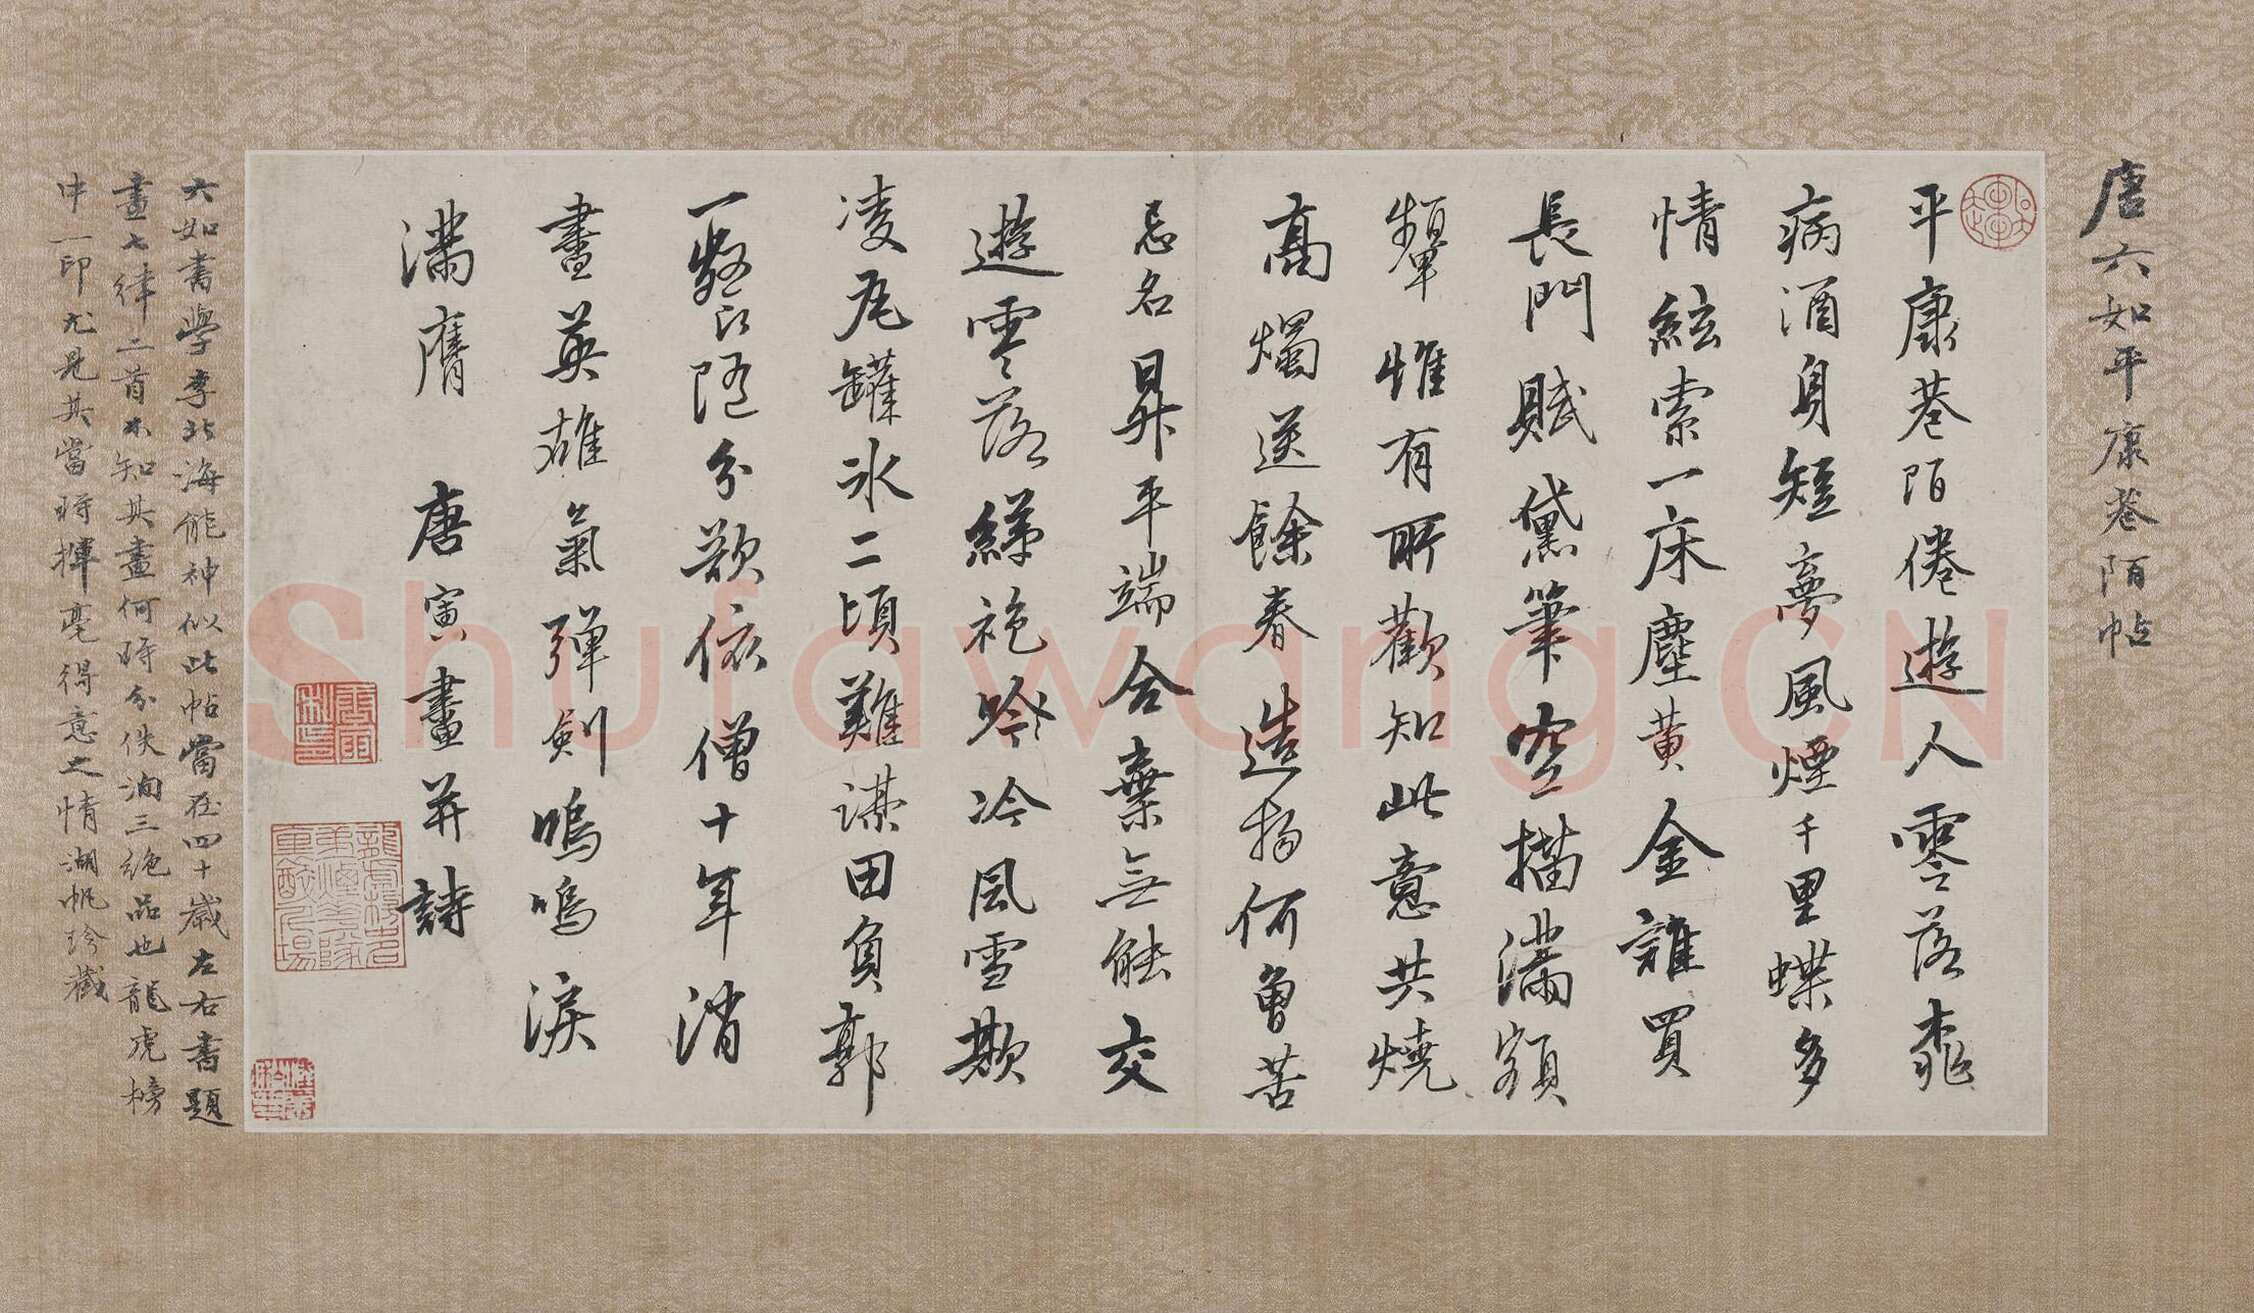 唐六如平康巷陌帖
平康巷陌倦遊人零落桃
病酒身短夢風煙千里蝶多
情絃索一床塵黃金誰買
長門賦黛筆空描滿額
顰惟有所歡知此意共燒
高燭送餘春造物何曾苦
忌名昇平端合棄無能交
遊零落綈袍冷風雪欺
凌瓦罐冰二頃難謀田負郭
一餐隨分欲依僧十年消
盡英雄氣彈劍嗚嗚淚
滿膺 唐寅畫并詩
六如書學李北海能神似此帖當在四十歲左右書題
畫七律二首不知其畫何時分佚洵三絕品也龍虎榜
中一印尤見其當時揮毫得意之情湖帆珍藏
Shufawang.CN